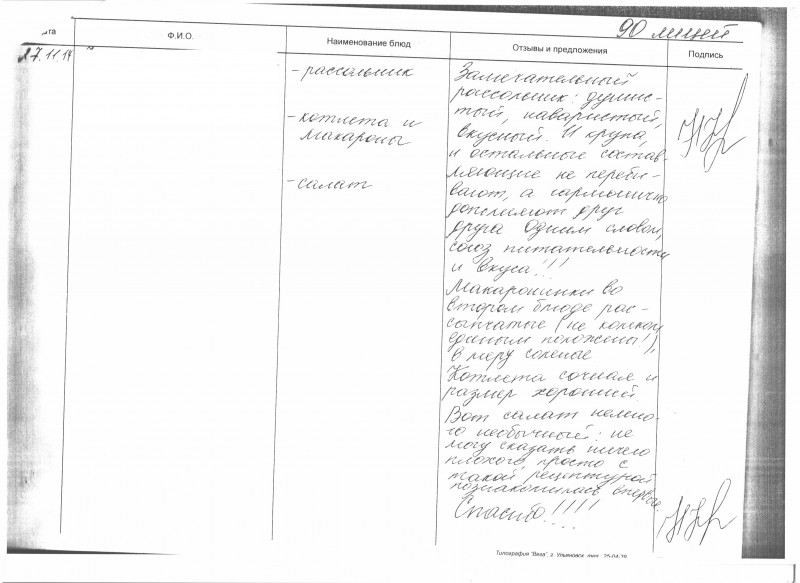 90 лицей
та
Ф.И.О.
Наименование блюд
Отзывы и предложения
Подпись
17.11.14
- рассольник
- котлета и
макароны
- салат
Замечательный
рассольник: душис-
тый, наваристый,
вкусный. И крупа,
и остальные состав-
ляющие не переби-
вают, а гармонично
дополняют друг
друга Одним словом,
союз питательности
и вкуса!!!
Макарошки во
втором блюде рас-
сыпчатые (не комком
единым положены!),
в меру соленые
Котлета сочная и
размер хороший
Вот салат немно-
го необычный: не
могу сказать ничего
плохого, просто с
такой рецептурой
познакомилась впервые
Спасибо!!!!
Типография "Вега", г. Ульяновск